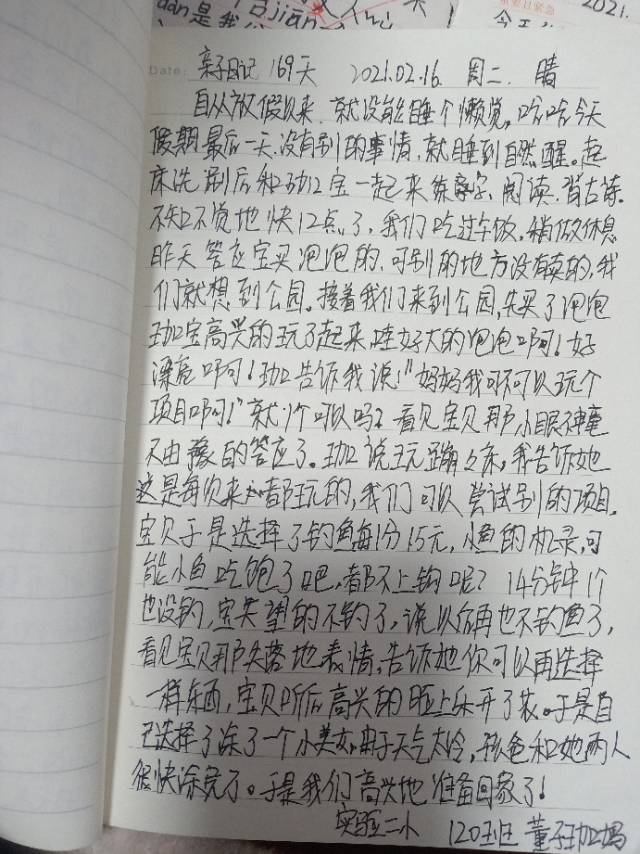 亲子日记 169天 2021.02.16. 周二. 晴
自从放假以来、就没能睡个懒觉，哈哈今天
假期最后一天、没有别的事情、就睡到自然醒。起
床洗刷后和珈宝一起来练字、阅读、背古诗.
不知不觉地快12点了，我们吃过午饭，稍做休息
昨天答应宝买泡泡的、可别的地方没有卖的，我
们就想到公园。接着我们来到公园，先买了泡泡
珈宝高兴的玩了起来哇好大的泡泡啊！好
漂亮啊！珈告诉我说！"妈妈我可不可以玩个
项目啊！"就1个可以吗？看见宝贝那小眼神毫
不由豫的答应了。珈说玩蹦蹦床，我告诉她
这是每次来都玩的，我们可以尝试别的项目.
宝贝于是选择了钓鱼每1分15元，小鱼的机录，可
能小鱼吃饱了吧，都不上钩呢？14分钟1个
也没钓，宝失望的不钓了，说以后再也不钓鱼了，
看见宝贝那失落地表情，告诉她你可以再选择
一样东西，宝贝听后高兴的脸上乐开了花。于是自
己选择了涂了一个小美女，由于天气太冷，我爸和她两人
很快涂完了。于是我们高兴地准备回家了！
实验二小 120班 董子珈妈
2021.